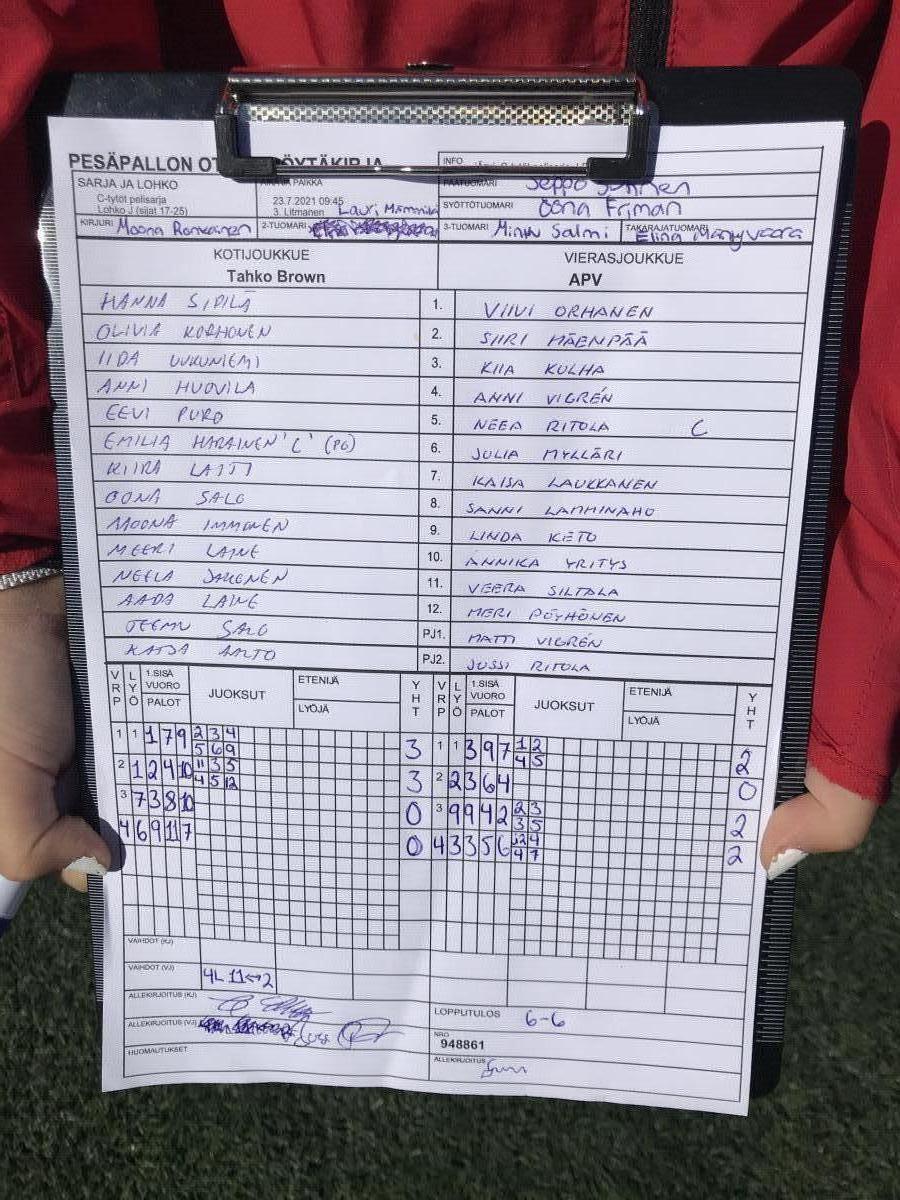 PESÄPALLON OT ÖYTÄKIRJA
INFO
SARJA JA LOHKO
C-tytöt pelisarja
Lohko J (sijat 17-25)
PAIKKA
23.7.2021 09:45
3. Litmanen Lauri
PÄÄTUOMARI Seppo
SYÖTTÖTUOMARI Oona Friman
KIRJURI Moona
2-TUOMARI
3-TUOMARI Minna Salmi
TAKARAJATUOMARI Elina Mäntyvaara
KOTIJOUKKUE
Tahko Brown
VIERASJOUKKUE
APV
HANNA SIPILÄ 1. VIIVI ORHANEN
OLIVIA KORHONEN 2. SIIRI MÄENPÄÄ
IIDA UUKUNIEMI 3. KIIA KULHA
ANNI HUOVILA 4. ANNI VIGRÉN
EEVI PURO 5. NEEA RITOLA C
EMILIA HARAINEN 'C' (PG) 6. JULIA MYLLÄRI
KIIRA LATTI 7. KAISA LAUKKANEN
OONA SALO 8. SANNI LAMMINAHO
MOONA IMMONEN 9. LINDA KETO
MEERI LAINE 10. ANNIKA YRITYS
NEELA 11. VEERA SILTALA
AADA LAINE 12. MERI PÖYHÖNEN
TEEMU SALO PJ1. MATTI VIGRÉN
KATJA AALTO PJ2. JUSSI RITOLA
VRP LYÖ 1.SISÄ VUORO PALOT JUOKSUT ETENIJÄ LYÖJÄ YHT VRP LYÖ 1.SISÄ VUORO PALOT JUOKSUT ETENIJÄ LYÖJÄ YHT
1 1 1 7 9 2 3 4 3 1 1 3 9 7 1 2 2
5 6 9 4 5
2 1 2 4 10 11 3 5 3 2 2 3 6 4 0
4 5 12
3 7 3 8 10 0 3 9 9 4 2 2 3 2
3 5
4 6 9 11 7 0 4 3 3 5 6 12 4 2
4 7
VAIHDOT (KJ)
VAIHDOT (VJ) 4L 11↔2
ALLEKIRJOITUS (KJ)
LOPPUTULOS 6-6
ALLEKIRJOITUS (VJ)
NRO
948861
HUOMAUTUKSET
ALLEKIRJOITUS